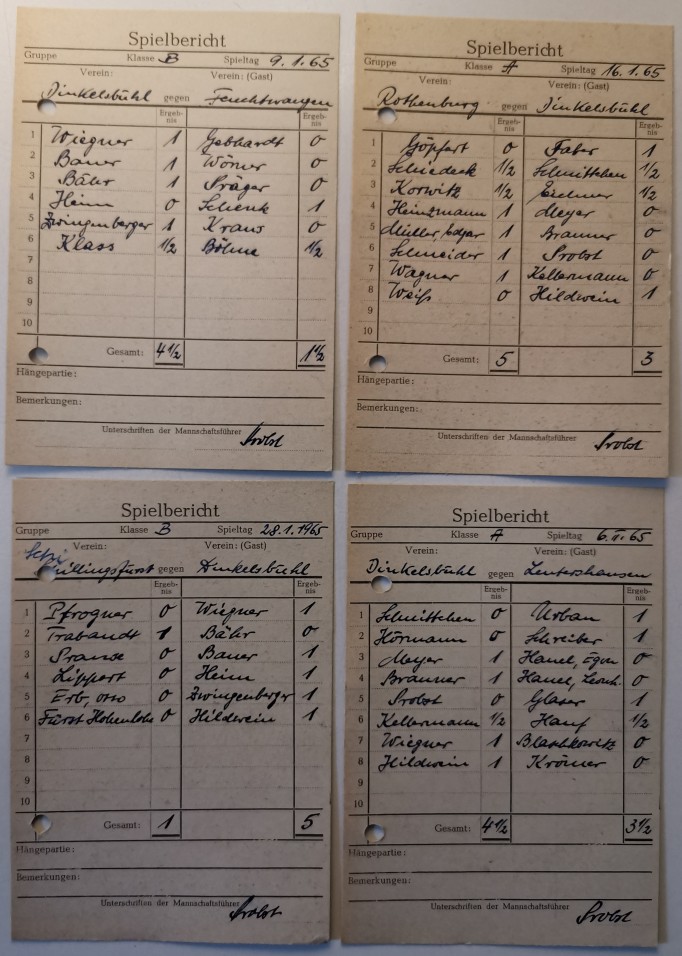 Spielbericht
Gruppe Klasse B Spieltag 9.1.65
Verein: Verein: (Gast)
Dinkelsbühl gegen Feuchtwangen
Ergeb-nis Ergeb-nis
1 Wiegner 1 Gebhardt 0
2 Bauer 1 Wörner 0
3 Bähr 1 Präger 0
4 Heim 0 Schenk 1
5 Zwingenberger 1 Kraus 0
6 Klass 1/2 Böhme 1/2
7
8
9
10
Gesamt: 4 1/2 1 1/2
Hängepartie:
Bemerkungen:
Unterschriften der Mannschaftsführer Probst
Spielbericht
Gruppe Klasse A Spieltag 16.1.65
Verein: Verein: (Gast)
Rothenburg gegen Dinkelsbühl
Ergeb-nis Ergeb-nis
1 Göpfert 0 Faber 1
2 Schiedeck 1/2 Schmittchen 1/2
3 Korwitz 1/2 Eichner 1/2
4 Heinzmann 1 Meyer 0
5 Müller, Edgar 1 Branner 0
6 Schneider 1 Probst 0
7 Wagner 1 Kellermann 0
8 Weiß 0 Hildwein 1
9
10
Gesamt: 5 3
Hängepartie:
Bemerkungen:
Unterschriften der Mannschaftsführer Probst
Spielbericht
Gruppe Klasse B Spieltag 28.1.1965
Verein: Verein: (Gast)
Schillingsfürst gegen Dinkelsbühl
Ergeb-nis Ergeb-nis
1 Pfrogner 0 Wiegner 1
2 Trabandt 1 Bähr 0
3 0 Bauer 1
4 Lippert 0 Heim 1
5 Erb, Otto 0 Zwingenberger 1
6 Fürst Hohenlohe 0 Hildwein 1
7
8
9
10
Gesamt: 1 5
Hängepartie:
Bemerkungen:
Unterschriften der Mannschaftsführer Probst
Spielbericht
Gruppe Klasse A Spieltag 6.II.65
Verein: Verein: (Gast)
Dinkelsbühl gegen Leutershausen
Ergeb-nis Ergeb-nis
1 Schmittchen 0 Urban 1
2 Hörmann 0 Schreiber 1
3 Meyer 1 Hanel, Egon 0
4 Branner 1 Hanel, Leonh. 0
5 Probst 0 Glaser 1
6 Kellermann 1/2 Hanf 1/2
7 Wiegner 1 Blaschkowitz 0
8 Hildwein 1 Krömer 0
9
10
Gesamt: 4 1/2 3 1/2
Hängepartie:
Bemerkungen:
Unterschriften der Mannschaftsführer Probst